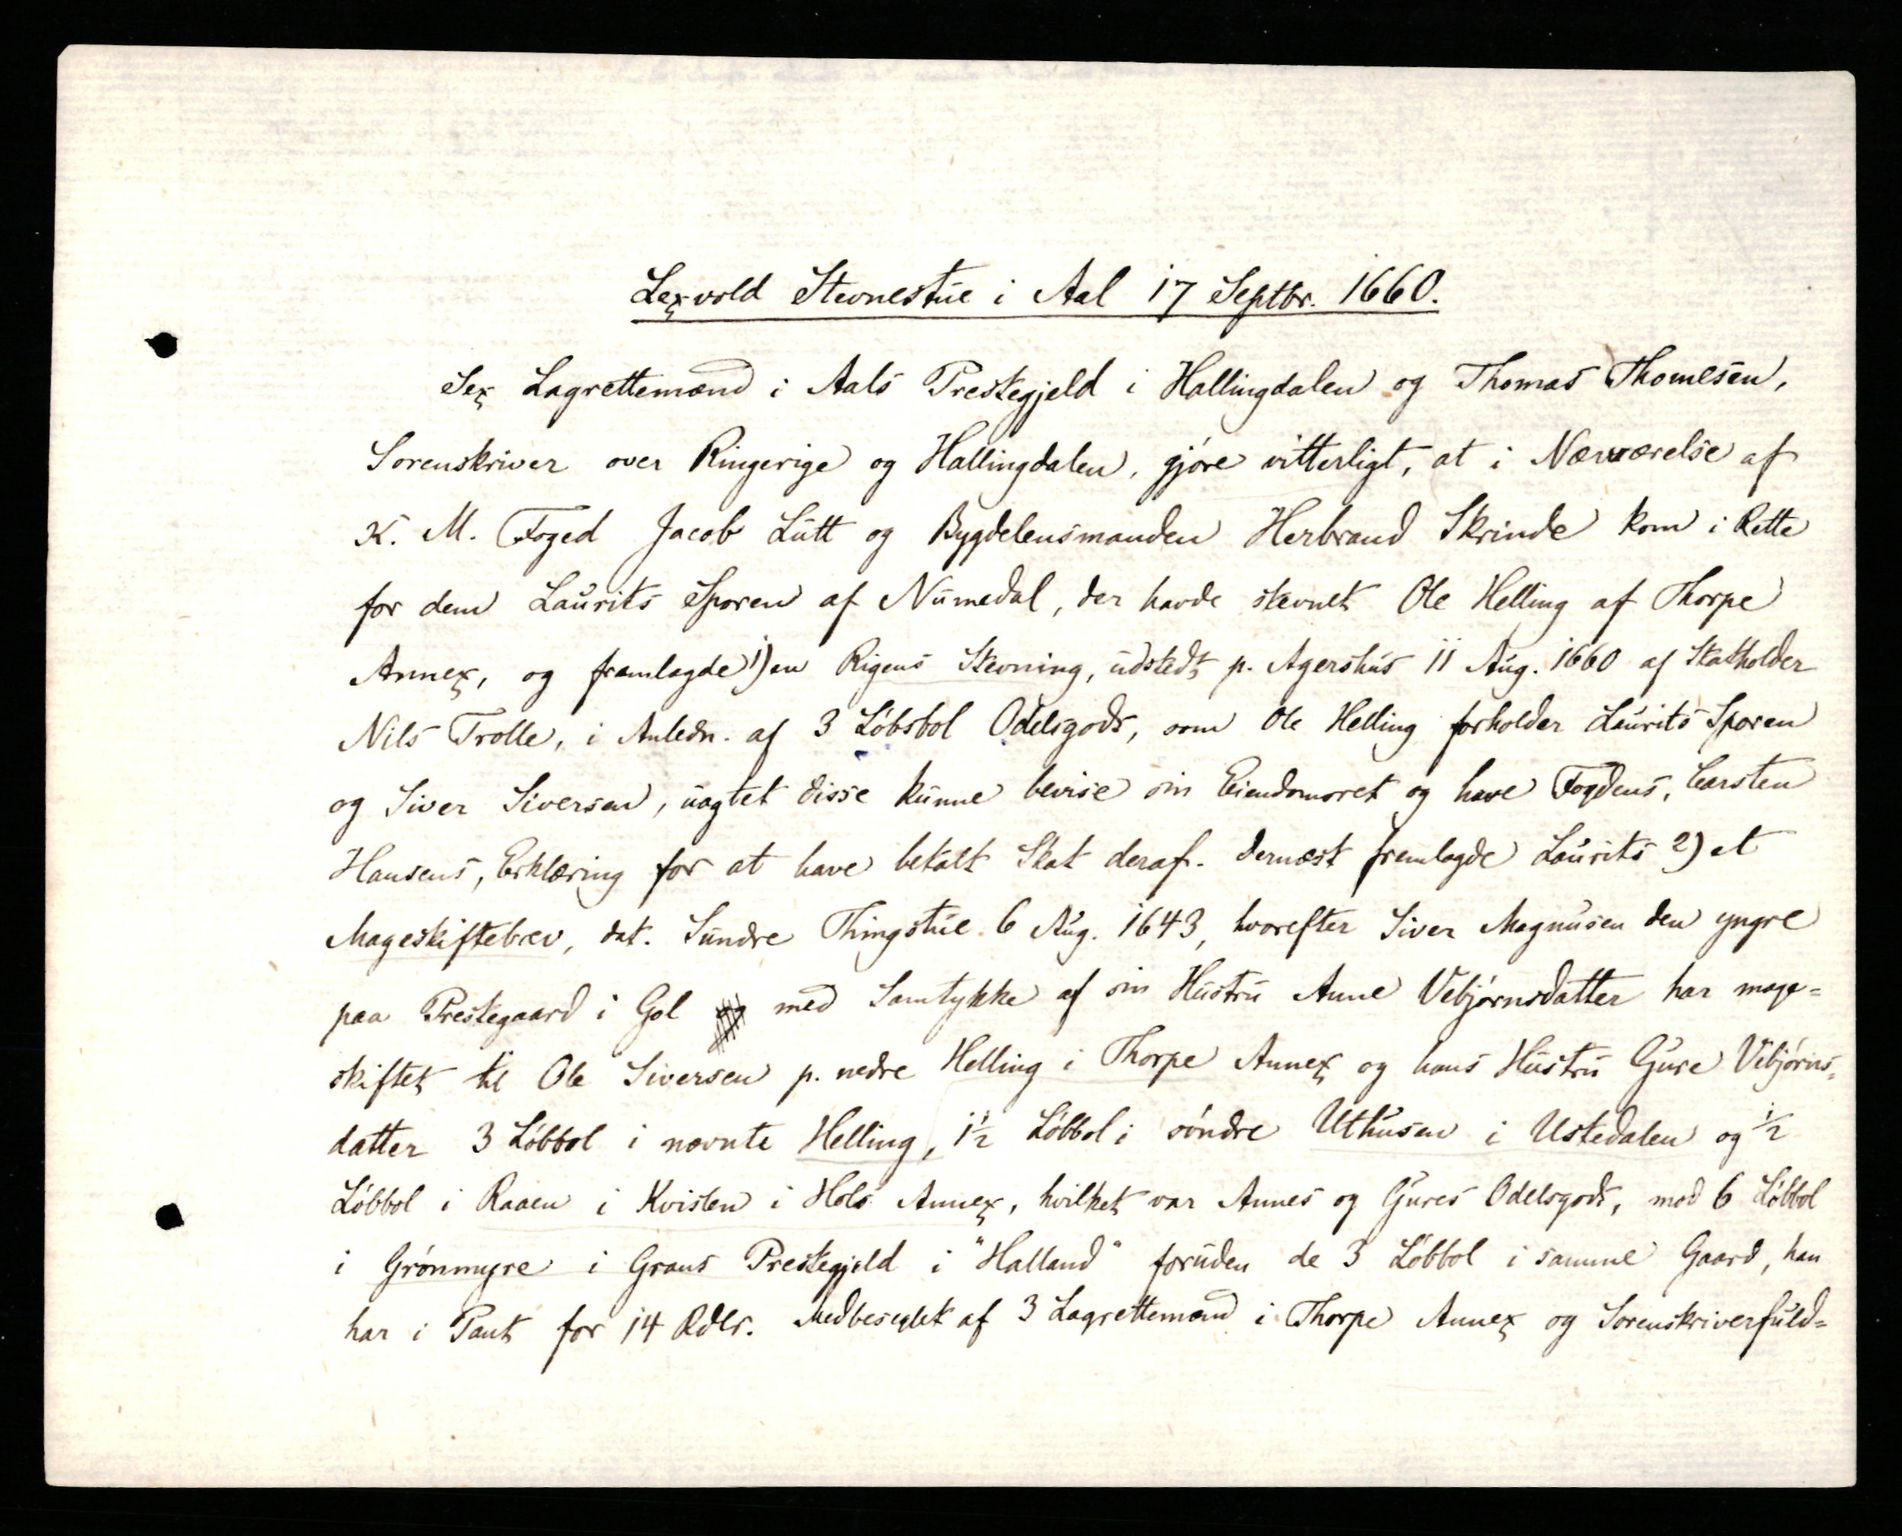 Lexvold Stevnestue i Aal 17 Septbr. 1660.
Sex Lagrettemænd i Aals Prestegjeld i Hallingdalen og Thomas Thomesen,
Sorenskriver over Ringerige og Hallingdalen, gjøre vitterligt, at i Nærværelse af
K. M. Foged Jacob Lutt og Bygdelensmanden Herbrand Skrinde kom i Rette
for dem Laurits Sporen af Numedal, der havde stevnet Ole Helling af Thorpe
Annex, og fremlagde 1) en Rigens Stevning, udstedt p. Agershus 11 Aug. 1660 af Statholder
Nils Trolle, i Anledn. af 3 Løbsbol Odelsgods, som Ole Helling forholder Laurits Sporen
og Siver Siversen, uagtet disse kunne bevise sin Eiendomsret og have Fogdens, Carsten
Hansens, Erklæring for at have betalt Skat deraf. Dernæst fremlagde Laurits 2) et
Mageskiftebrev, dat. Sundre Thingstue 6 Aug. 1643, hvorefter Siver Magnusen den yngre
paa Prestegaard i Gol med Samtykke af sin Hustru Anne Vebjørnsdatter har mage=
skiftet til Ole Siversen p. nedre Helling i Thorpe Annex og hans Hustru Gure Vibjørns=
datter 3 Løbbol i nævnte Helling, 1½ Løbbol i søndre Uthusen i Ustedalen og ½
Løbbol i Raaen i Kvislen i Hols Annex, hvilket var Annes og Gures Odelsgods, mod 6 Løbbol
i Grønmyre i Grans Prestegjeld i "Halland" foruden de 3 Løbbol i samme Gaard, han
har i Pant for 14 Rdlr. Medbeseglet af 3 Lagrettemænd i Thorpe Annex og Sorenskriverfuld=